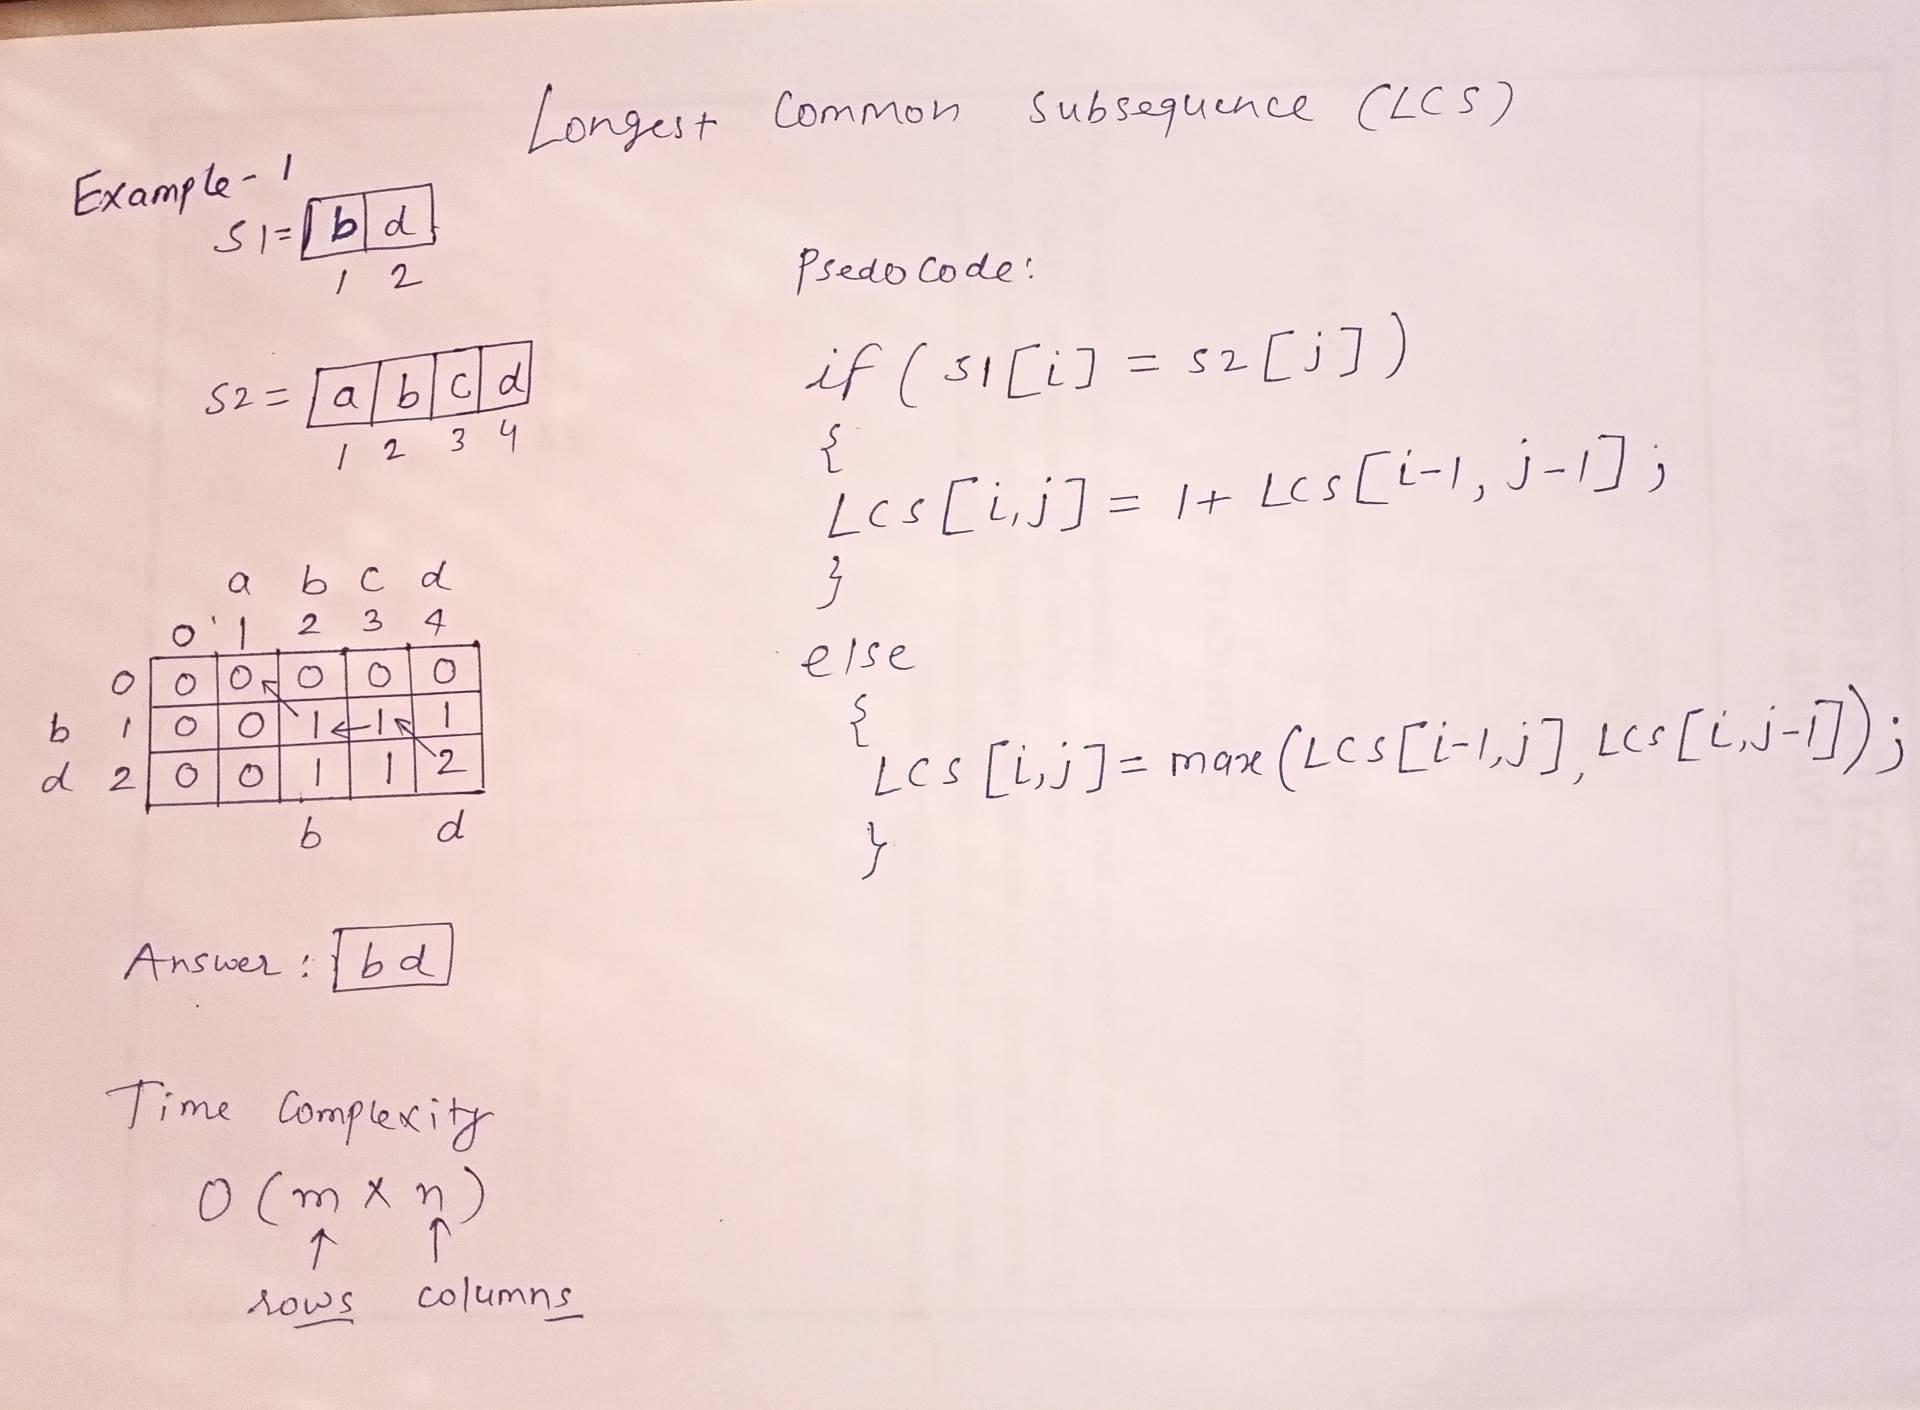 Longest Common Subsequence (LCS)
Example-1
S1= b d
1 2
S2= a b c d
1 2 3 4
a b c d
0 1 2 3 4
0 0 0 0 0 0
b 1 0 0 1 1 1
d 2 0 0 1 1 2
b d
Answer : bd
Time Complexity
O (m x n)
rows columns
Psedo code:
if ( S1[i] = S2[j])
{
LCS[i,j] = 1+ LCS[i-1, j-1];
}
else
{
LCS [i,j] = max (LCS[i-1,j], LCS[i,j-1]);
}